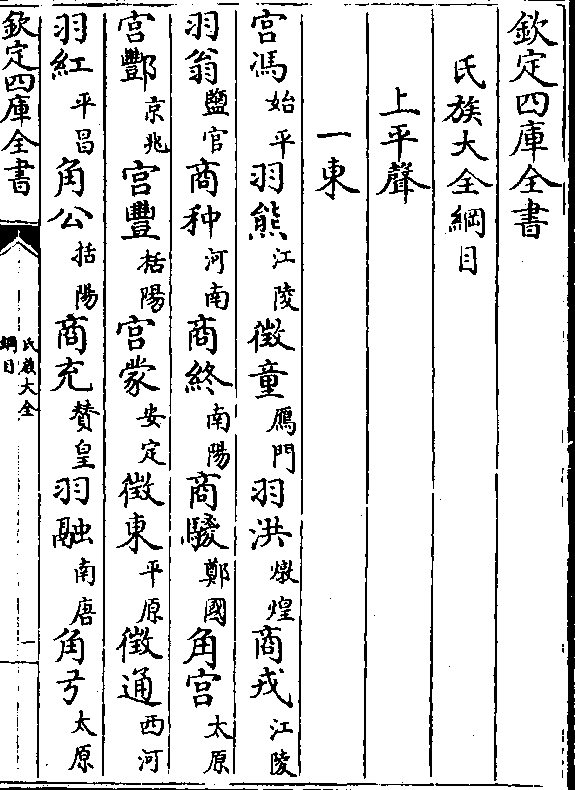 欽定四庫全書
氏族大全綱目
上平聲
一東
宮馮始平羽熊江陵徵童鴈門羽洪燉煌商戎江陵
羽翁鹽官商种河南商終南陽商騣鄭國角宮太原
宮酆京兆宮豐括陽宮蒙安定徵東平原徵通西河
羽紅平昌角公括陽商充贊皇羽融南唐角弓太原
欽定四庫全書
氏族大全
綱目
一